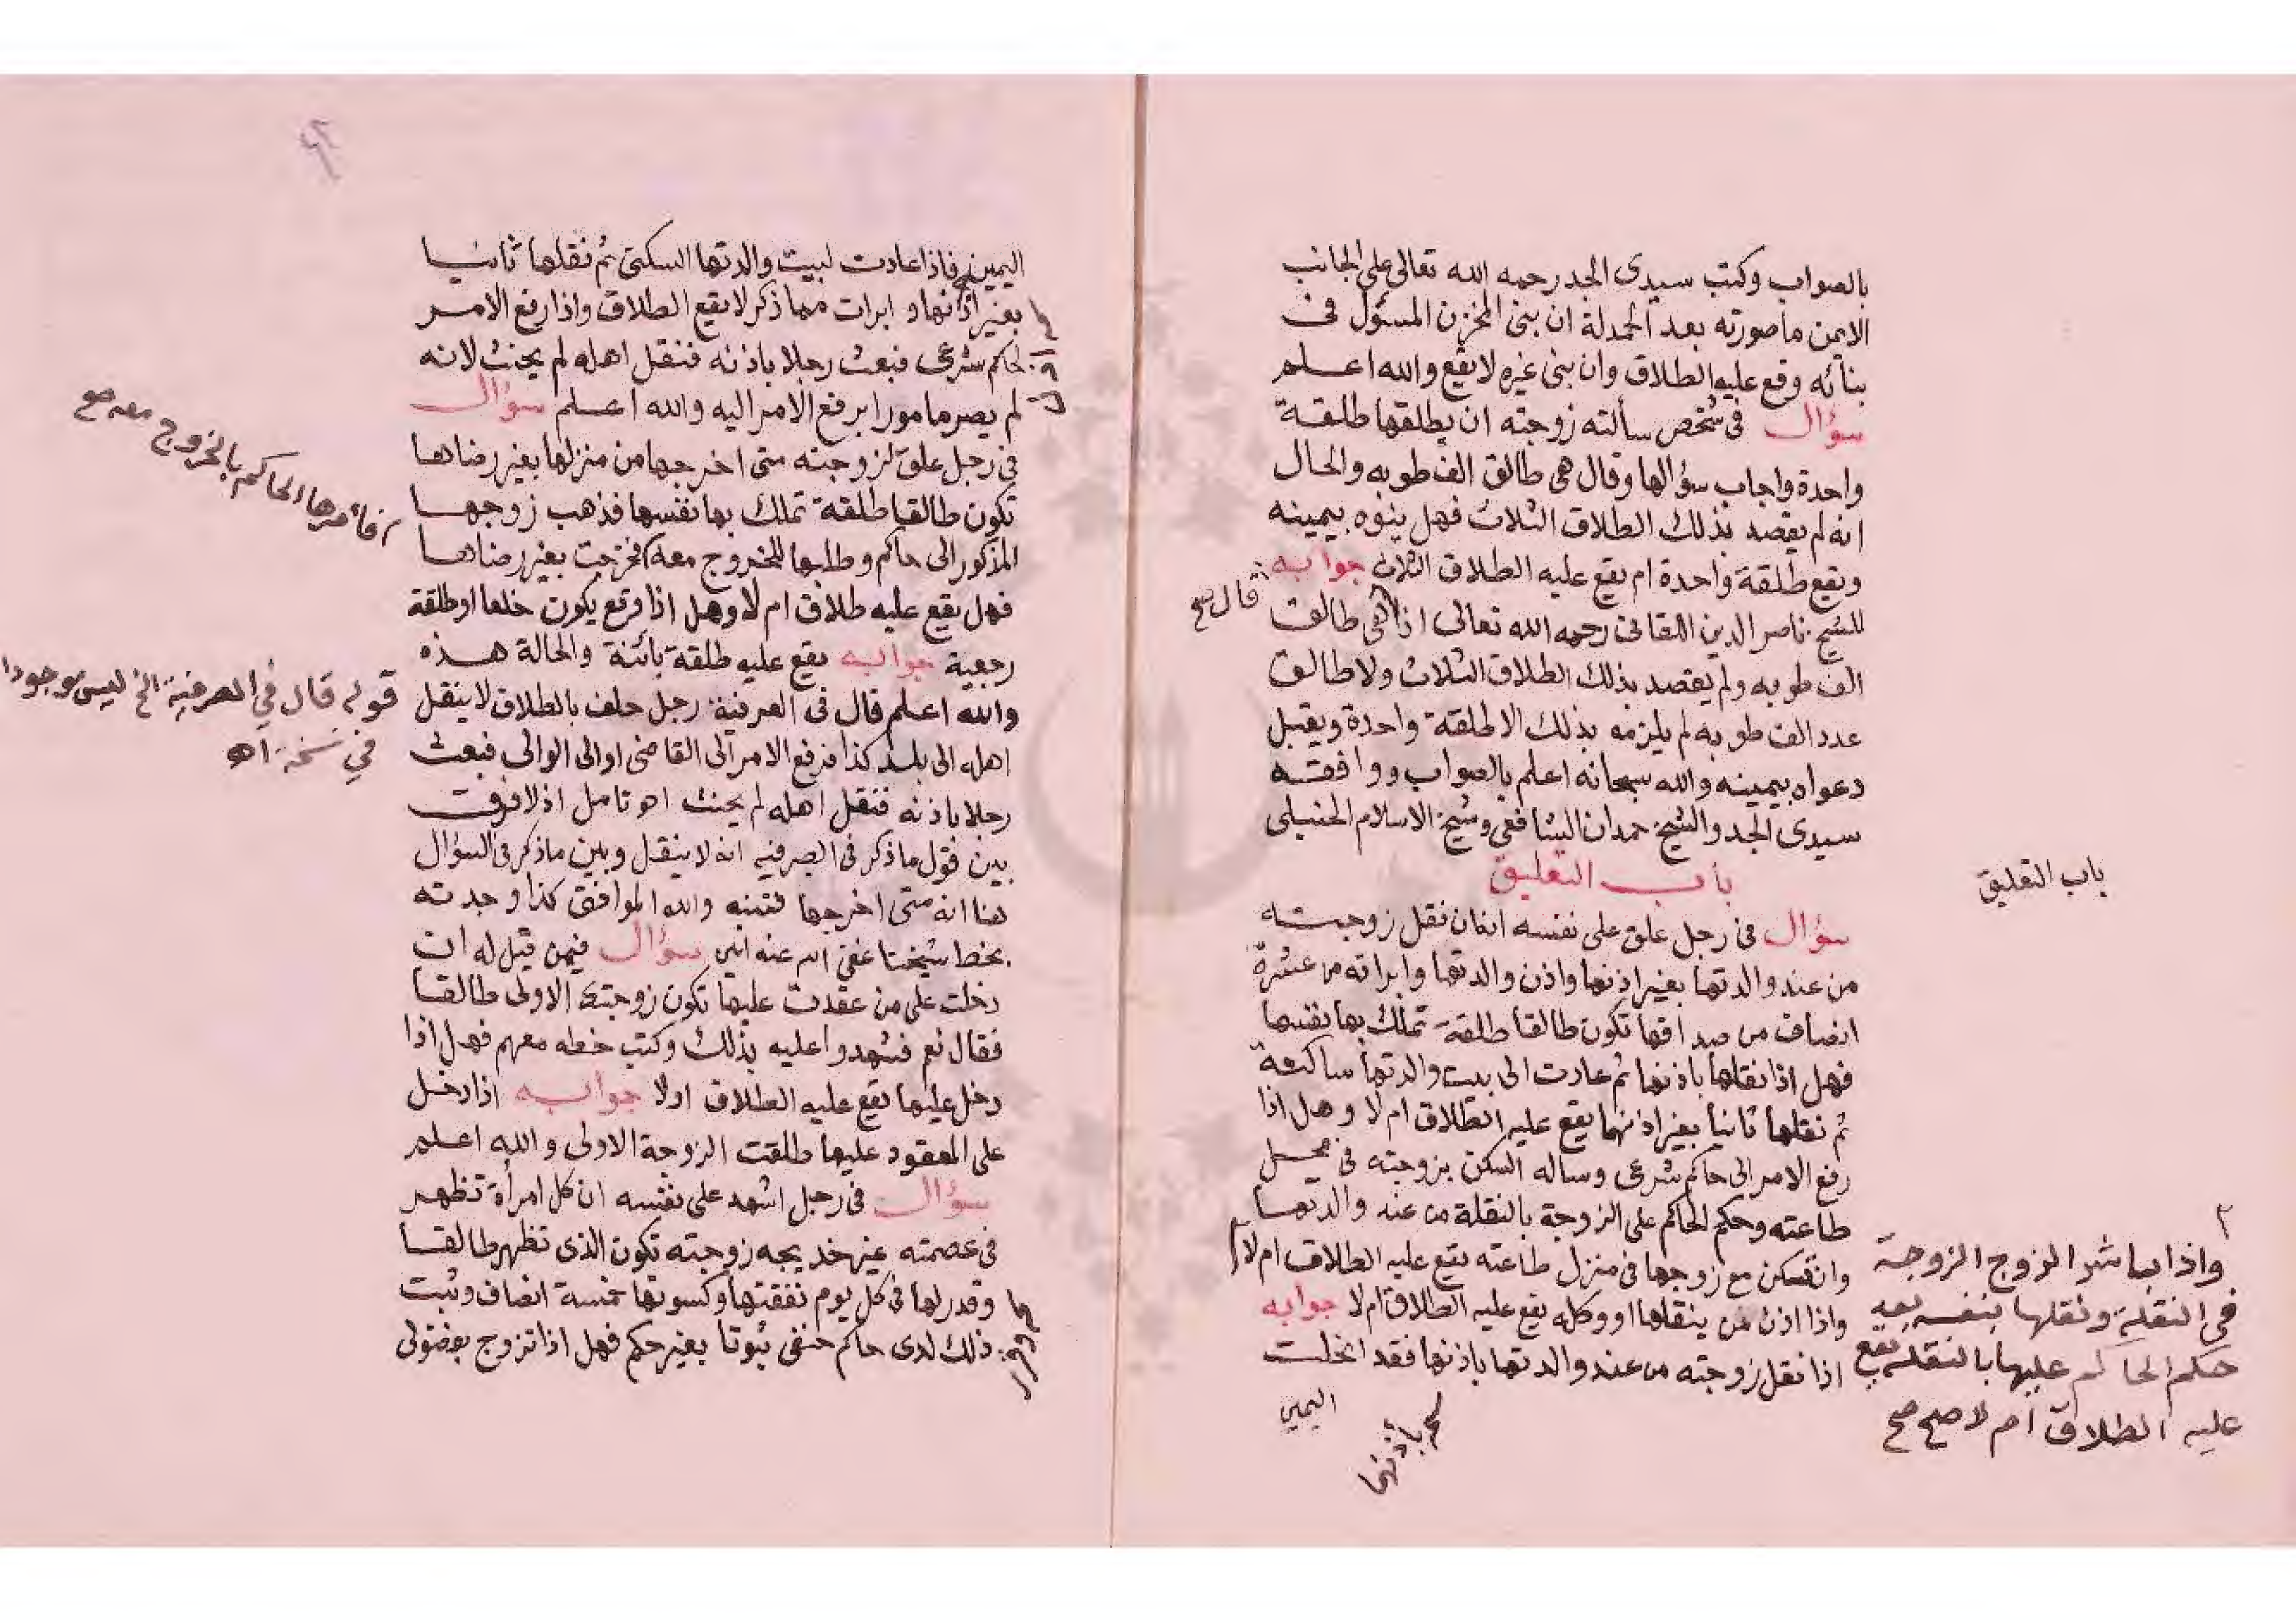 بالصواب وكتب سيدى الجد رحمه الله تعالى على الجانب
الايمن ما صورته بعد الحمدلة ان بنى المخزن المسئول فى
بنائه وقع عليه الطلاق وان بنى غيره لا يقع والله اعلم
سؤال فى شخص سألته زوجته ان يطلقها طلقة
واحدة واجاب سؤالها وقال هى طالق الف طوبه والحال
انه لم يقصد بذلك الطلاق الثلاث فهل ينوه بيمينه
ويقع طلقة واحدة ام يقع عليه الطلاق الثلاث جوابه
للشيخ ناصر الدين اللقانى رحمه الله تعالى اذا هى طالق
قال صح
الف طوبه ولم يقصد بذلك الطلاق الثلاث ولا طالق
عدد الف طوبه لم يلزمه بذلك الا طلقة واحدة ويقبل
دعواه بيمينه والله سبحانه اعلم بالصواب ووافقه
سيدى الجد والشيخ حمدان الشافعى وشيخ الاسلام الحنبلى
باب التعليق
باب التعليق
سؤال فى رجل علق على نفسه ان نقل زوجته
من عند والدتها بغير اذنها واذن والدتها وابراته من عشرة
انصاف من صداقها تكون طالقا طلقة تملك بها نفسها
فهل اذا نقلها باذنها ثم عادت الى بيت والدتها ساكنة
ثم نقلها ثانيا بغير اذنها يقع عليه الطلاق ام لا وهل اذا
رفع الامر الى حاكم شرعى وساله السكن بزوجته فى محل
طاعته وحكم الحاكم على الزوجة بالنقلة من عند والدتها
وان تسكن مع زوجها فى منزل طاعته يقع عليه الطلاق ام لا
واذا اذن لمن ينقلها او وكله يقع عليه الطلاق ام لا جوابه
اذا نقل زوجته من عند والدتها باذنها فقد انحلت
اليمين
باذنها
واذا باشر الزوج الزوجة
فى النقلة ونقلها بنفسه بعد
حكم الحاكم عليها بالنقلة يقع
عليه الطلاق ام لا صح صح
اليمين فاذا عادت لبيت والدتها السكنى ثم نقلها ثانيا
بغير اذنها وابرات مما ذكر لا يقع الطلاق واذا رفع الامر
لحاكم شرعى فبعث رجلا باذنه فنقل اهله لم يحنث لانه
لم يصر مامورا برفع الامر اليه والله اعلم سؤال
فى رجل علق لزوجته متى اخرجها من منزلها بغير رضاها
تكون طالقا طلقة تملك بها نفسها فذهب زوجها
المذكور الى حاكم وطلبها للخروج معه فخرجت بغير رضاها
فأمرها الحاكم بالخروج معه صح
فهل يقع عليه طلاق ام لا وهل اذا وقع يكون خلعا او طلقة
رجعية جوابه يقع عليه طلقة بائنة والحالة هذه
والله اعلم قال فى الصرفية رجل حلف بالطلاق لا ينقل
قوله قال في الصرفية الخ ليس موجودا
في نسخة اهـ
اهله الى بلد كذا فرفع الامر الى القاضى او الى الوالى فبعث
رجلا باذنه فنقل اهله لم يحنث اهـ تامل اذ لا فرق
بين قول ما ذكر فى الصرفية انه لا ينقل وبين ما ذكر فى السؤال
هنا انه متى اخرجها فتنبه والله الموافق كذا وجدته
بخط شيخنا عفى الله عنه امين سؤال فيمن قيل له ان
دخلت على من عقدت عليها تكون زوجتك الاولى طالقا
فقال نعم فشهدوا عليه بذلك وكتب خطه معهم فهل اذا
دخل عليها يقع عليه الطلاق او لا جوابه اذا دخل
على المعقود عليها طلقت الزوجة الاولى والله اعلم
سؤال فى رجل اشهد على نفسه ان كل امرأة تظهر
فى عصمته غير خديجه زوجته تكون الذى تظهر طالقا
وقدر لها فى كل يوم نفقتها وكسوتها خمسة انصاف وثبت
ذلك لدى حاكم حنفى ثبوتا بغير حكم فهل اذا تزوج بفضولى